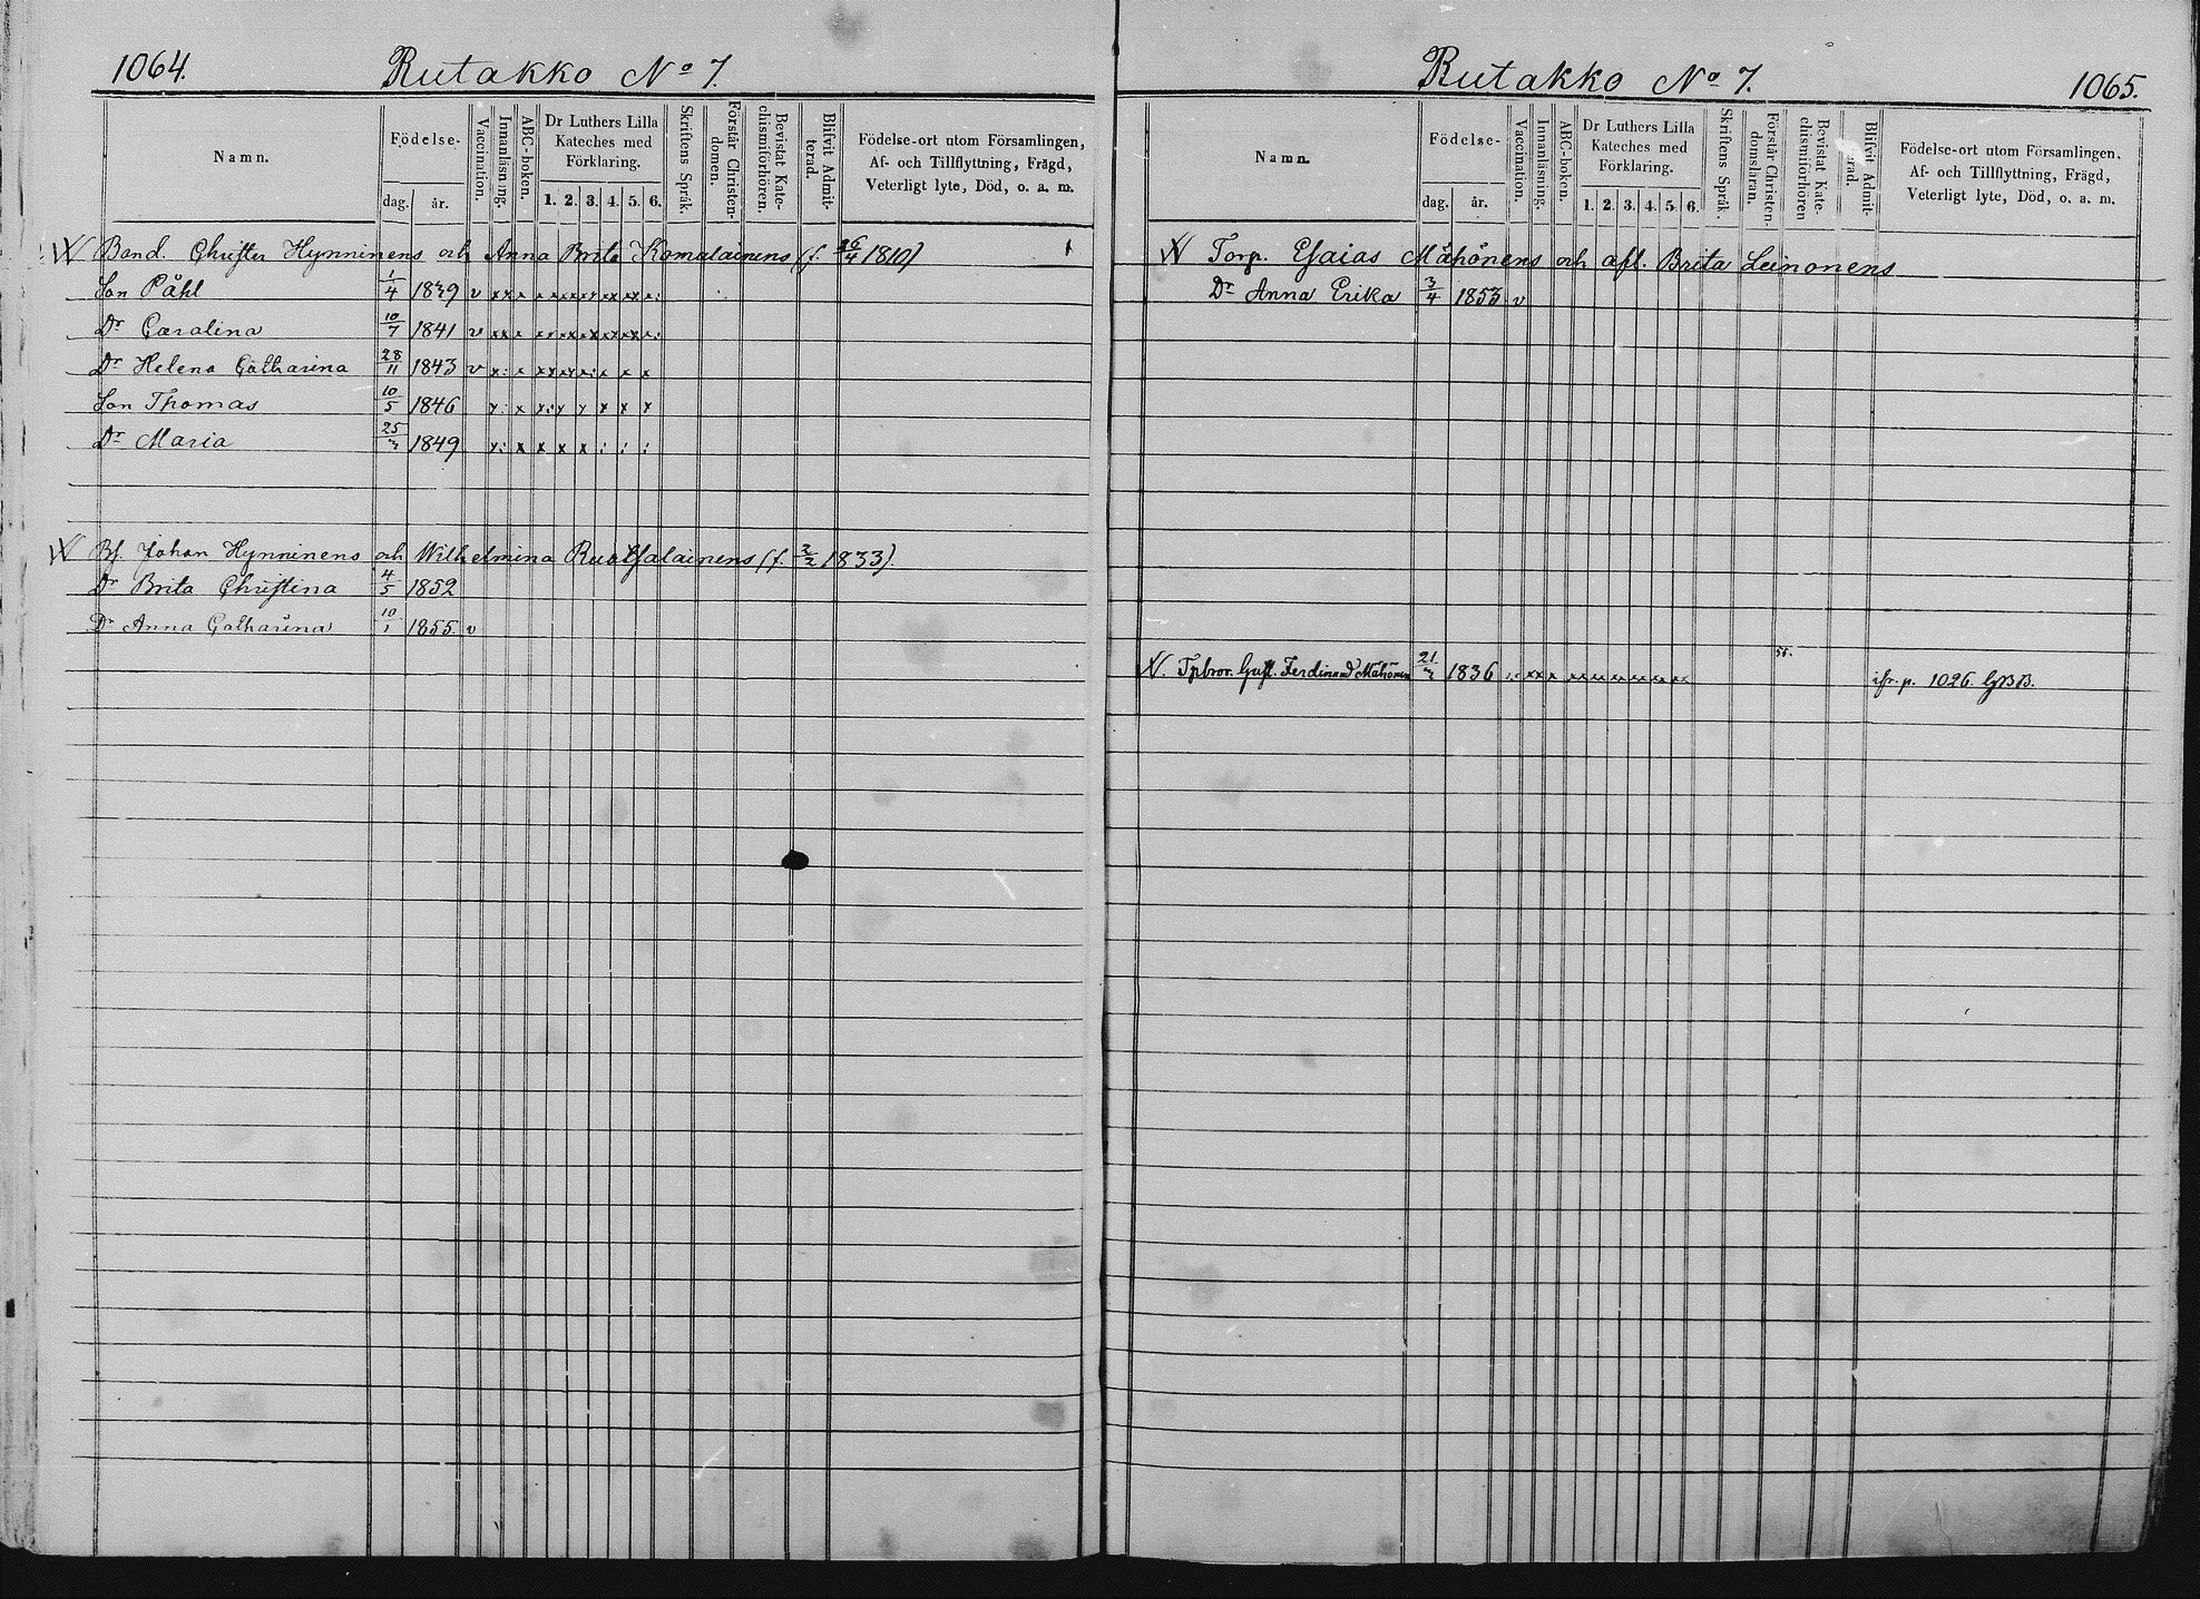 1064. Rutakko No 7.
Namn.
Födelse-
dag. år.
Vaccination.
Innanläsning.
ABC-boken.
Dr Luthers Lilla
Kateches med
Förklaring.
1. 2. 3. 4. 5. 6.
Skriftens Språk.
Förstår Christen-
domen.
Bevistat Kate-
chismiförhören.
Blifvit Admit-
terad.
Födelse-ort utom Församlingen,
Af- och Tillflyttning, Frägd,
Veterligt lyte, Död, o. a. m.
Bond. Christer Hynninens och Anna Brita Komulainens (f. 1810)
Son Påhl 1/4 1839 v
Dr Carolina 10/7 1841 v
Dr Helena Catharina 28/11 1843 v
Son Thomas 10/5 1846
Dr Maria 25/3 1849
Bf. Johan Hynninens och Wilhelmina Ruotsalainens (f. 2/2 1833).
Dr Brita Christina 4/5 1852
Dr Anna Catharina 10/1 1855. v
Rutakko No 7. 1065.
Namn.
Födelse-
dag. år.
Vaccination.
Innanläsning.
ABC-boken.
Dr Luthers Lilla
Kateches med
Förklaring.
1. 2. 3. 4. 5. 6.
Skriftens Språk.
Förstår Christen-
domsläran.
Bevistat Kate-
chismiförhören
Blifvit Admit-
terad.
Födelse-ort utom Församlingen,
Af- och Tillflyttning, Frägd,
Veterligt lyte, Död, o. a. m.
Torp. Esaias Mähönens och afl. Brita Leinonens
Dr Anna Erika 3/4 1853 v
Tpbror. Gust. Ferdinand Mähönen 21/3 1836 p. 1026. GBB.